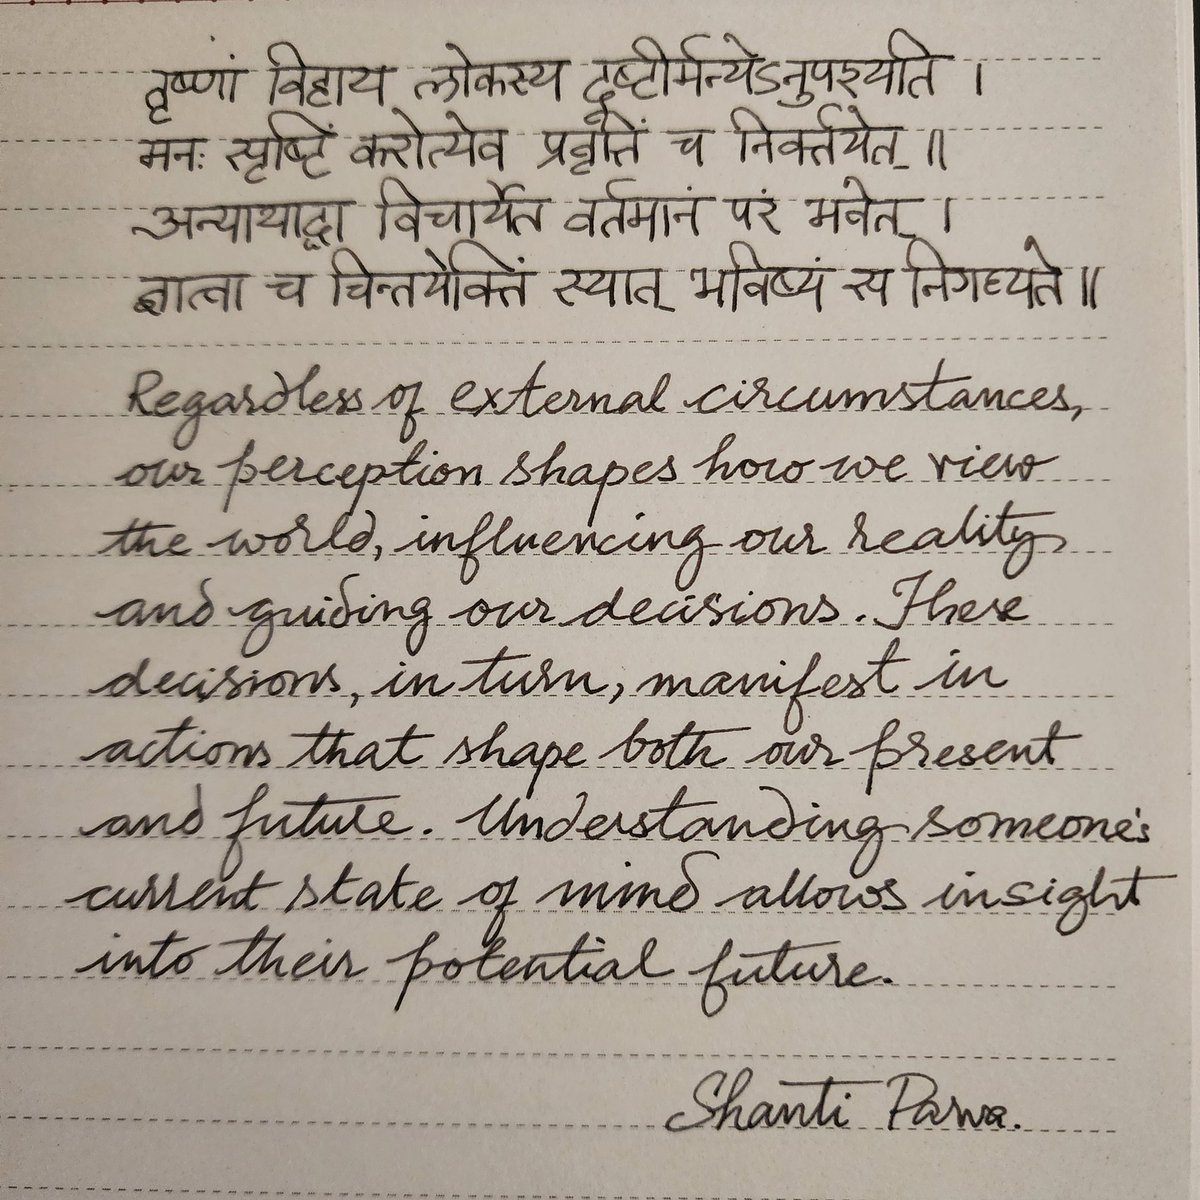 तृष्णां विहाय लोकस्य दृष्टीर्मन्येऽनुपश्यति ।
मनः सृष्टिं करोत्येव प्रवृत्तिं च निवर्तयेत् ॥
अन्यायाद्वा विचार्येत वर्तमानं परं भवेत् ।
ज्ञात्वा च चिन्तयेक्तिं स्यात् भविष्यं स्य निगद्यते ॥
Regardless of external circumstances,
our perception shapes how we view
the world, influencing our reality
and guiding our decisions. These
decisions, in turn, manifest in
actions that shape both our present
and future. Understanding someone's
current state of mind allows insight
into their potential future.
Shanti Parva.